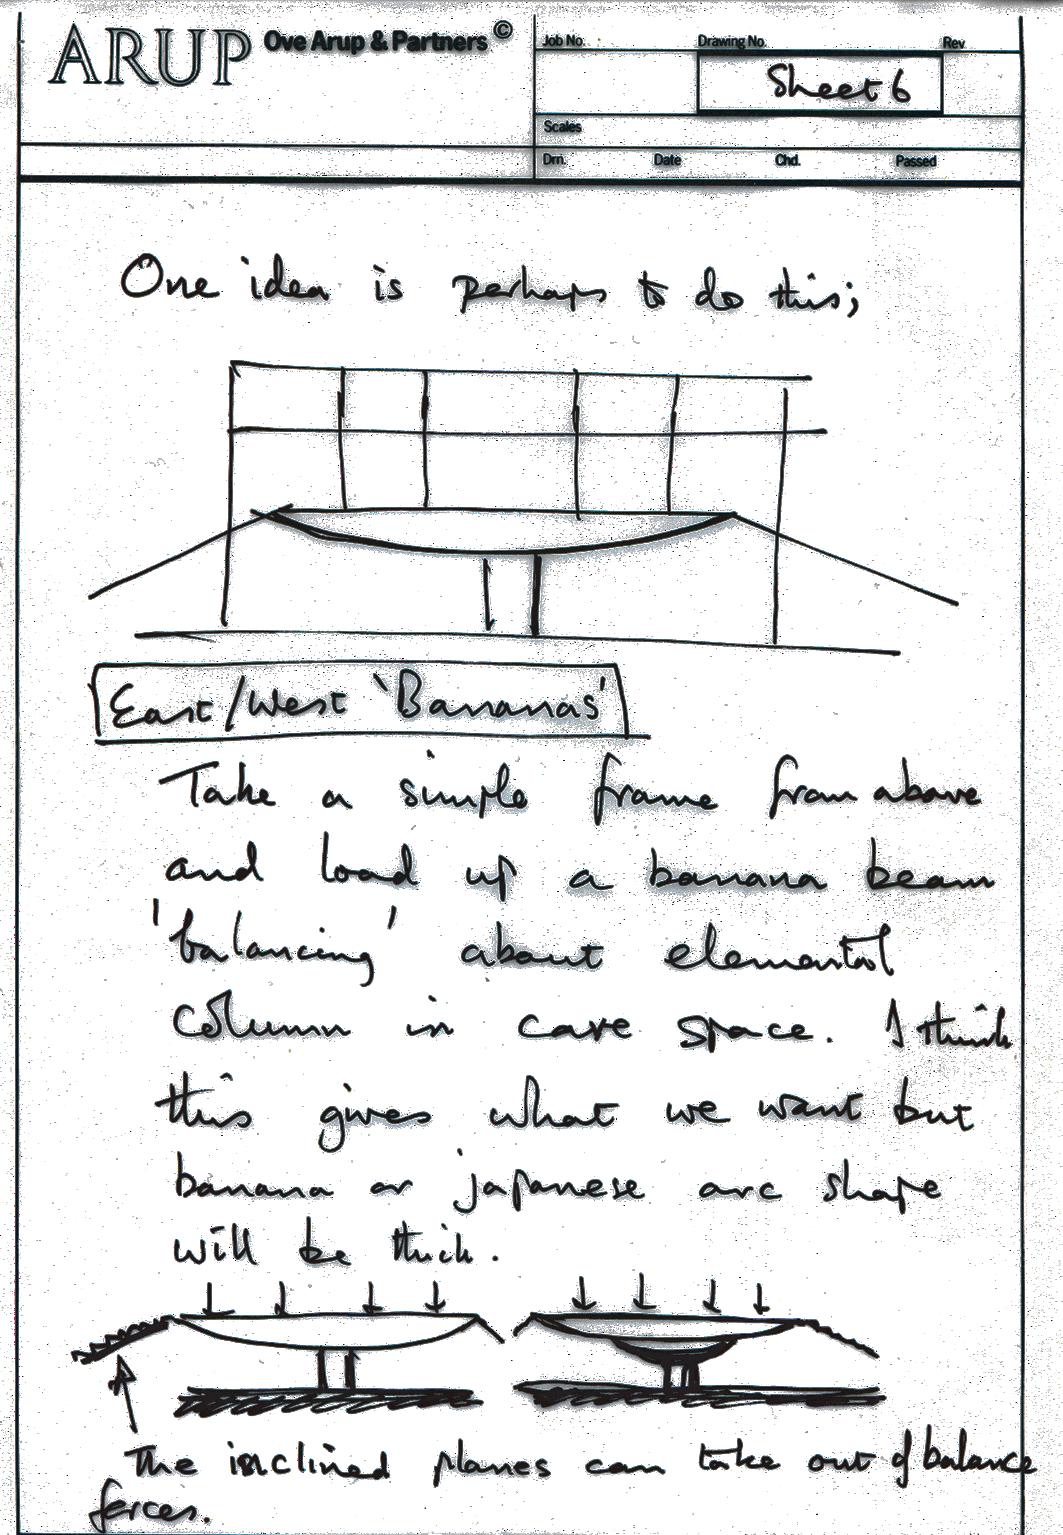 ARUP Ove Arup & Partners ©
Job No. Drawing No. Rev.
Sheet 6
Scales
Drn. Date Chd. Passed
One idea is perhaps to do this;
East/West 'Bananas'
Take a simple frame from above
and load up a banana beam
'balancing' about elemental
column in cave space. I think
this gives what we want but
banana or japanese arc shape
will be thick.
The inclined planes can take out of balance
forces.